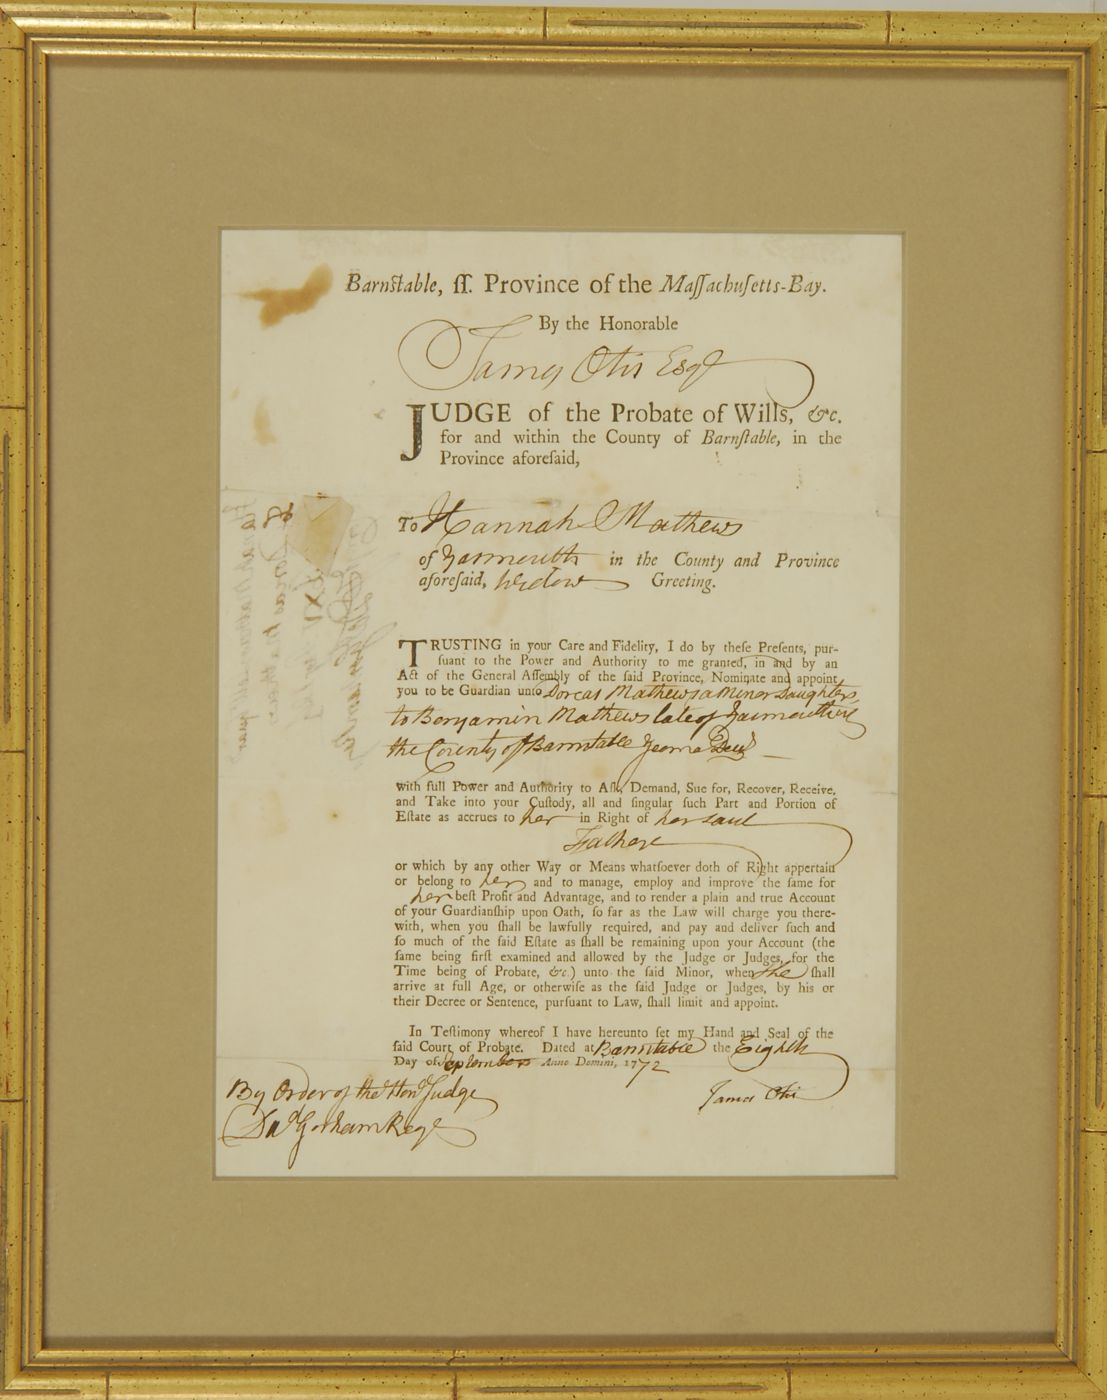 Barnſtable, ſſ. Province of the Maſſachuſetts-Bay.
By the Honorable
James Otis Esqr
JUDGE of the Probate of Wills, &c.
for and within the County of Barnſtable, in the
Province aforeſaid,
To Hannah Mathews
of Yarmouth in the County and Province
aforeſaid, Widow Greeting.
TRUSTING in your Care and Fidelity, I do by theſe Preſents, pur-
ſuant to the Power and Authority to me granted, in and by an
Act of the General Aſſembly of the ſaid Province, Nominate and appoint
you to be Guardian unto Dorcas Mathews a Minor Daughter
to Benjamin Mathews late of Yarmouth in
the County of Barnstable Yeoman Decd
with full Power and Authority to Aſk, Demand, Sue for, Recover, Receive,
and Take into your Cuſtody, all and ſingular ſuch Part and Portion of
Eſtate as accrues to her in Right of her said
Father
or which by any other Way or Means whatſoever doth of Right appertain
or belong to her and to manage, employ and improve the ſame for
her beſt Profit and Advantage, and to render a plain and true Account
of your Guardianſhip upon Oath, ſo far as the Law will charge you there-
with, when you ſhall be lawfully required, and pay and deliver ſuch and
ſo much of the ſaid Eſtate as ſhall be remaining upon your Account (the
ſame being firſt examined and allowed by the Judge or Judges, for the
Time being of Probate, &c.) unto the ſaid Minor, when She ſhall
arrive at full Age, or otherwiſe as the ſaid Judge or Judges, by his or
their Decree or Sentence, purſuant to Law, ſhall limit and appoint.
In Teſtimony whereof I have hereunto ſet my Hand and Seal of the
ſaid Court of Probate. Dated at Barnstable the Eighth
Day of September Anno Domini, 1772
By Order of the Hond Judge
James Otis
Dad Gorham Regr